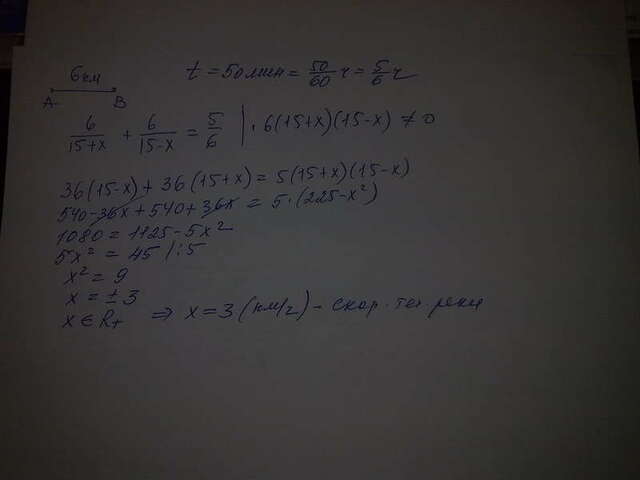 6 км
t = 50 мин = 50/60 ч = 5/6 ч
A B
6/(15+x) + 6/(15-x) = 5/6 | · 6(15+x)(15-x) ≠ 0
36(15-x) + 36(15+x) = 5(15+x)(15-x)
540 - 36x + 540 + 36x = 5·(225-x²)
1080 = 1125 - 5x²
5x² = 45 | :5
x² = 9
x = ±3
x ∈ R₊ ⇒ x = 3 (км/ч) - скор. теч. реки